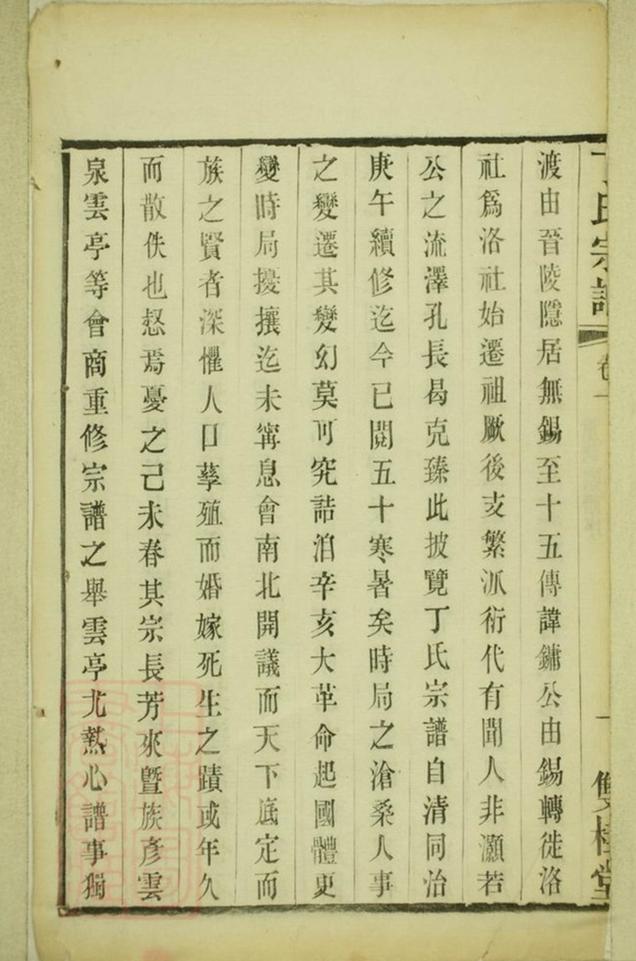 丁氏宗譜
卷一
一
雙桂堂
渡由晉陵隱居無錫至十五傳諱鏞公由錫轉徙洛
社爲洛社始遷祖厥後支繁派衍代有聞人非灝若
公之流澤孔長曷克臻此披覽丁氏宗譜自清同治
庚午續修迄今已閱五十寒暑矣時局之滄桑人事
之變遷其變幻莫可究詰洎辛亥大革命起國體更
變時局擾攘迄未甯息會南北開議而天下底定而
族之賢者深懼人口孳殖而婚嫁死生之蹟或年久
而散佚也惄焉憂之己未春其宗長芳來暨族彥雲
泉雲亭等會商重修宗譜之舉雲亭尤熱心譜事獨